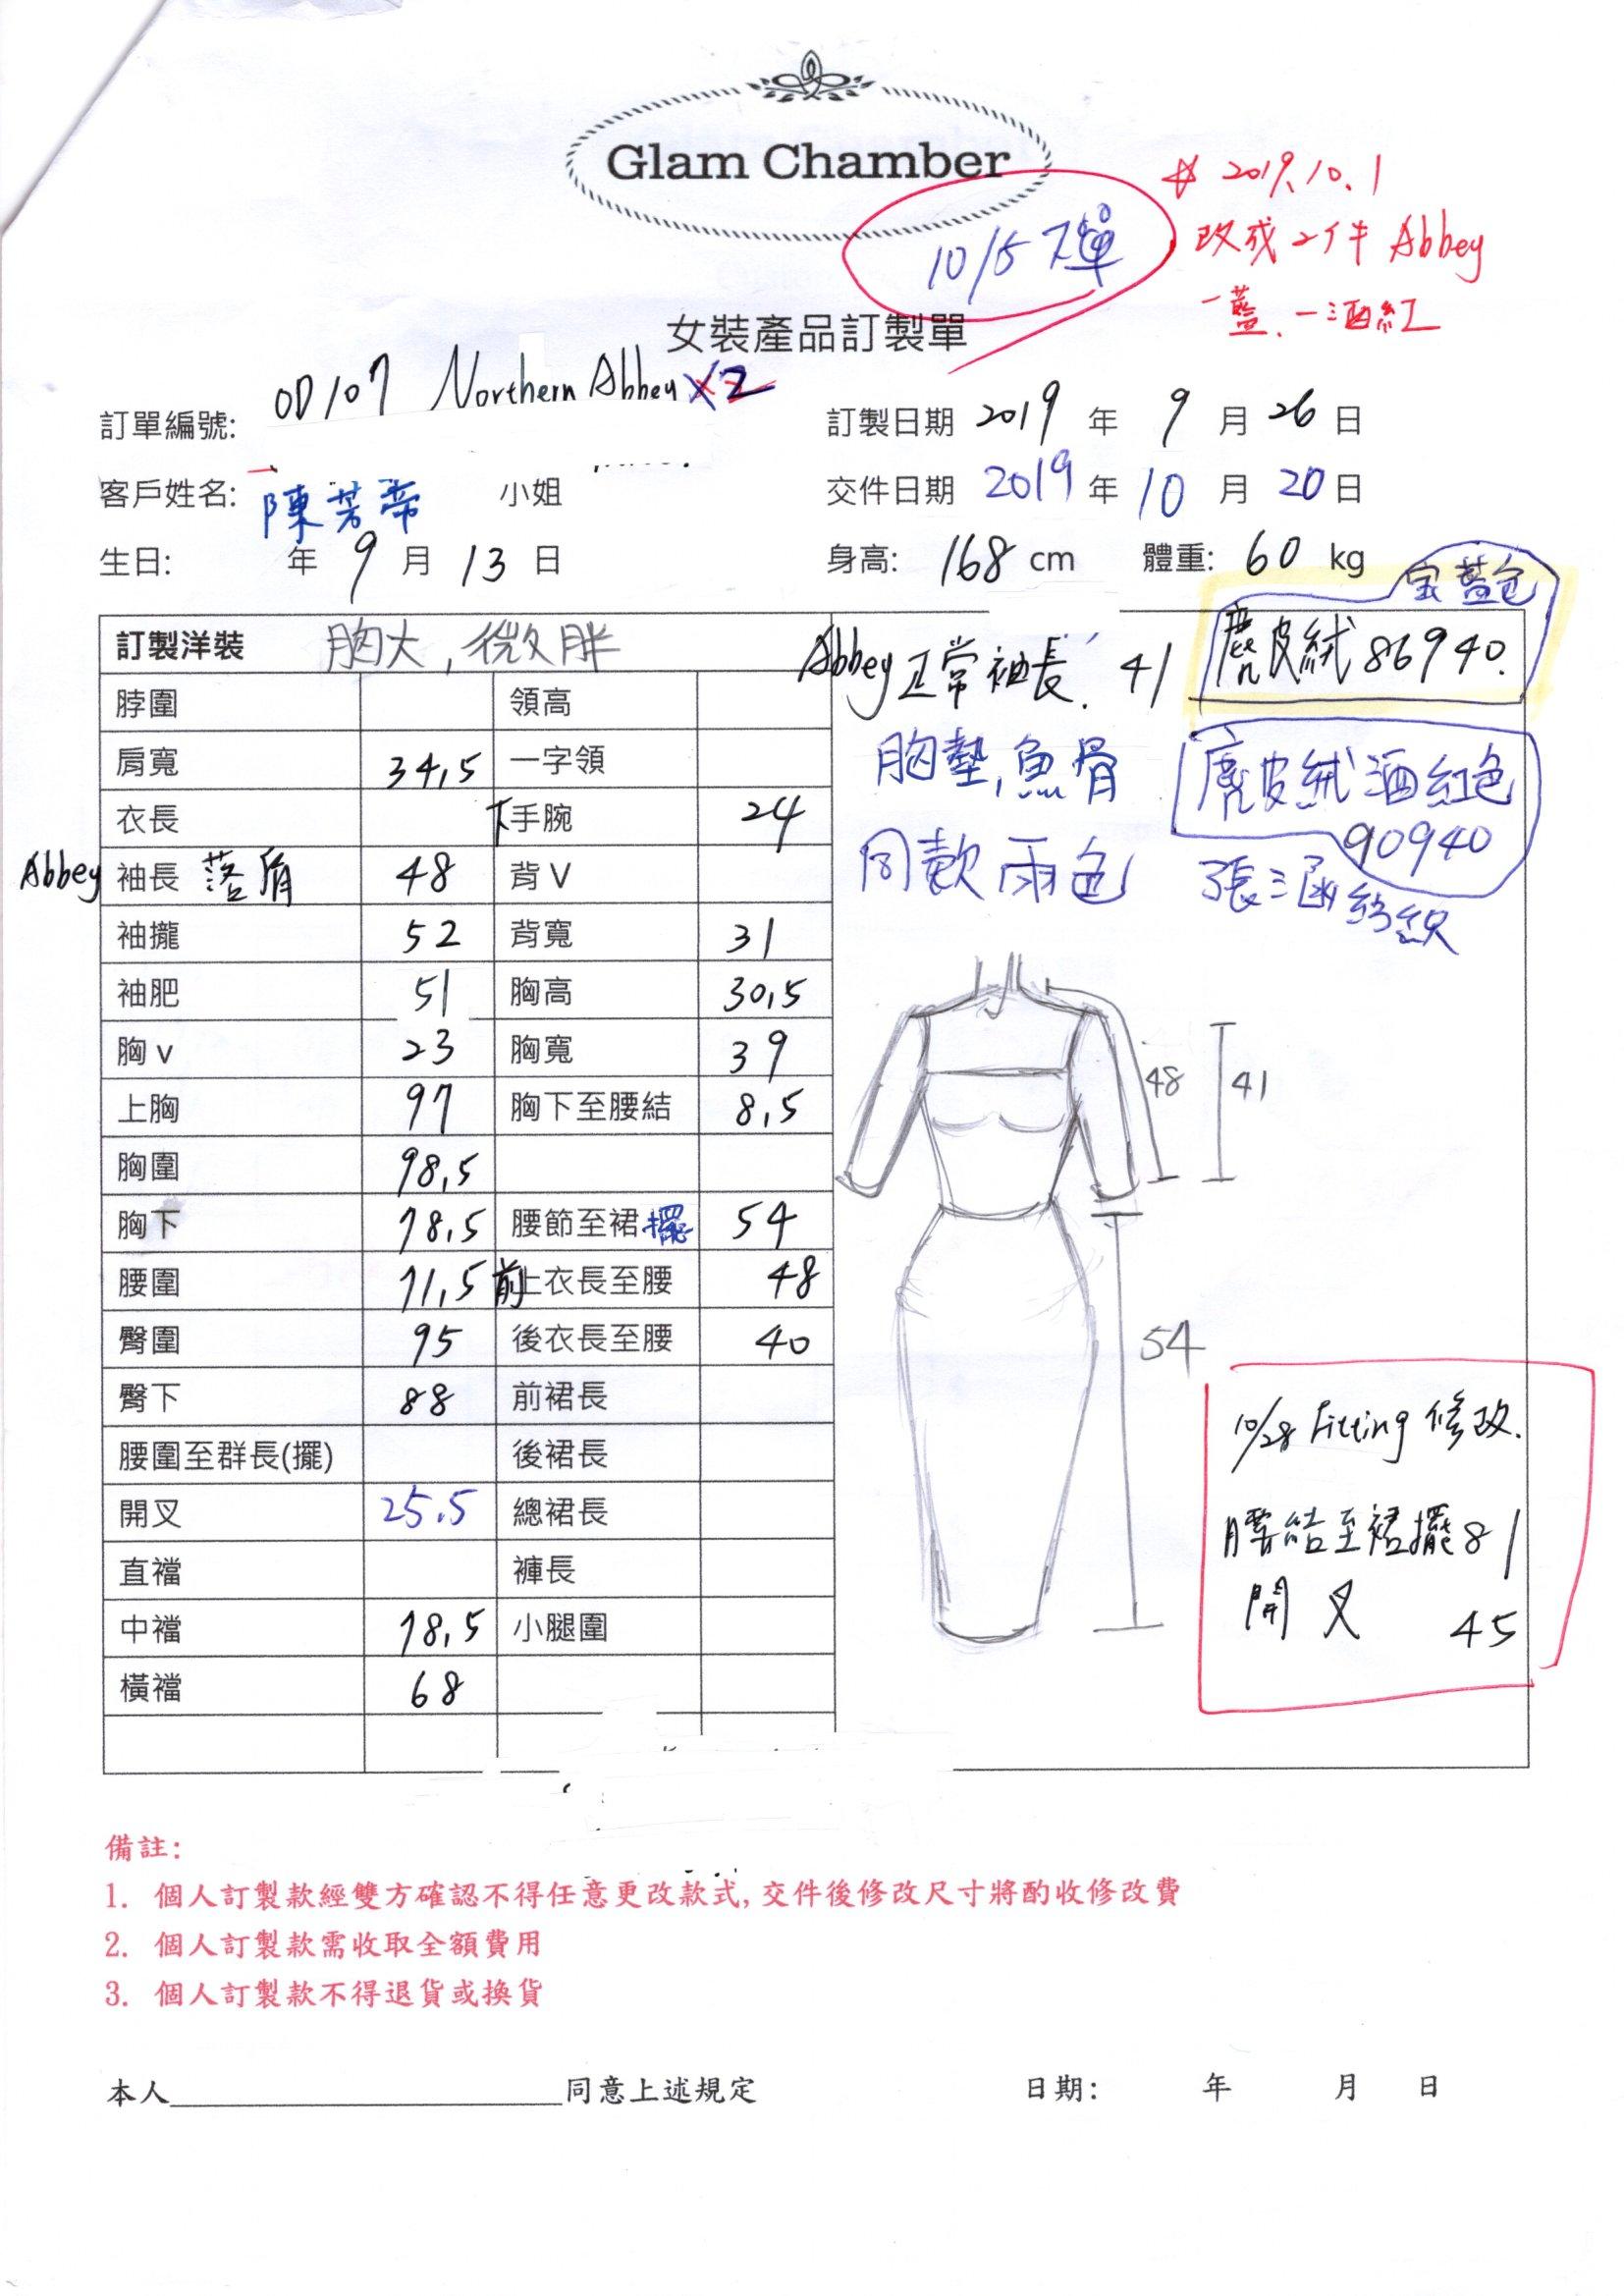 Glam Chamber
# 2019.10.1
改成2件 Abbey
一藍、一酒紅
10/5 下單
女裝產品訂製單
訂單編號: OD107 Northern Abbey X2
訂製日期 2019 年 9 月 26 日
客戶姓名: 陳芳帝 小姐
交件日期 2019 年 10 月 20 日
生日: 年 9 月 13 日
身高: 168 cm 體重: 60 kg
訂製洋裝 胸大,微胖
脖圍 領高
肩寬 34.5 一字領
衣長 下手腕 24
Abbey 袖長 落肩 48 背V
袖攏 52 背寬 31
袖肥 51 胸高 30.5
胸v 23 胸寬 39
上胸 97 胸下至腰結 8.5
胸圍 98.5
胸下 78.5 腰節至裙擺 54
腰圍 71.5 前上衣長至腰 48
臀圍 95 後衣長至腰 40
臀下 88 前裙長
腰圍至群長(擺) 後裙長
開叉 25.5 總裙長
直襠 褲長
中襠 78.5 小腿圍
橫襠 68
Abbey 正常袖長. 41
宝藍色
麂皮絨 86940.
胸墊,魚骨
麂皮絨酒紅色
90940
同款兩色
張三函紡織
48 41
54
10/28 Fitting 修改.
腰結至裙擺 81
開叉 45
備註:
1. 個人訂製款經雙方確認不得任意更改款式,交件後修改尺寸將酌收修改費
2. 個人訂製款需收取全額費用
3. 個人訂製款不得退貨或換貨
本人 同意上述規定 日期: 年 月 日